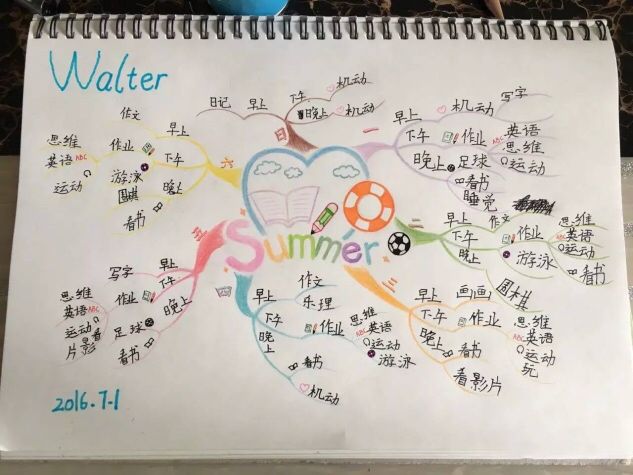 Walter
Summer
一
早上
机动
写字
下午
作业
ABC
英语
思维
运动
晚上
足球
看书
睡觉
二
早上
作文
下午
作业
思维
ABC
英语
运动
晚上
游泳
看书
围棋
三
早上
画画
下午
作业
思维
ABC
英语
运动
玩
晚上
看书
看影片
早上
作文
乐理
下午
作业
思维
ABC
英语
运动
游泳
晚上
看书
机动
五
早上
写字
下午
作业
思维
英语
ABC
运动
看影片
晚上
足球
看书
六
早上
作文
下午
作业
思维
英语
ABC
运动
游泳
围棋
晚上
看书
日
早上
日记
下午
机动
晚上
机动
2016.7.1